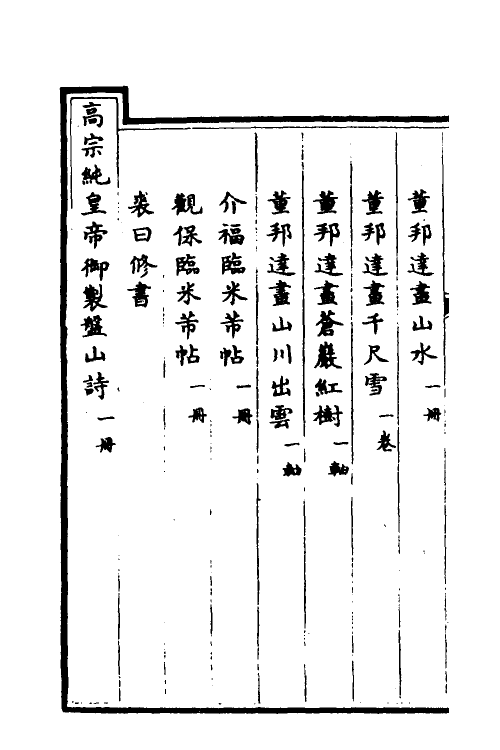 董邦達畫山水一冊
董邦達畫千尺雪一卷
董邦達畫蒼巖紅樹一軸
董邦達畫山川出雲一軸
介福臨米芾帖一冊
觀保臨米芾帖一冊
裘曰修書
高宗純皇帝御製盤山詩一冊